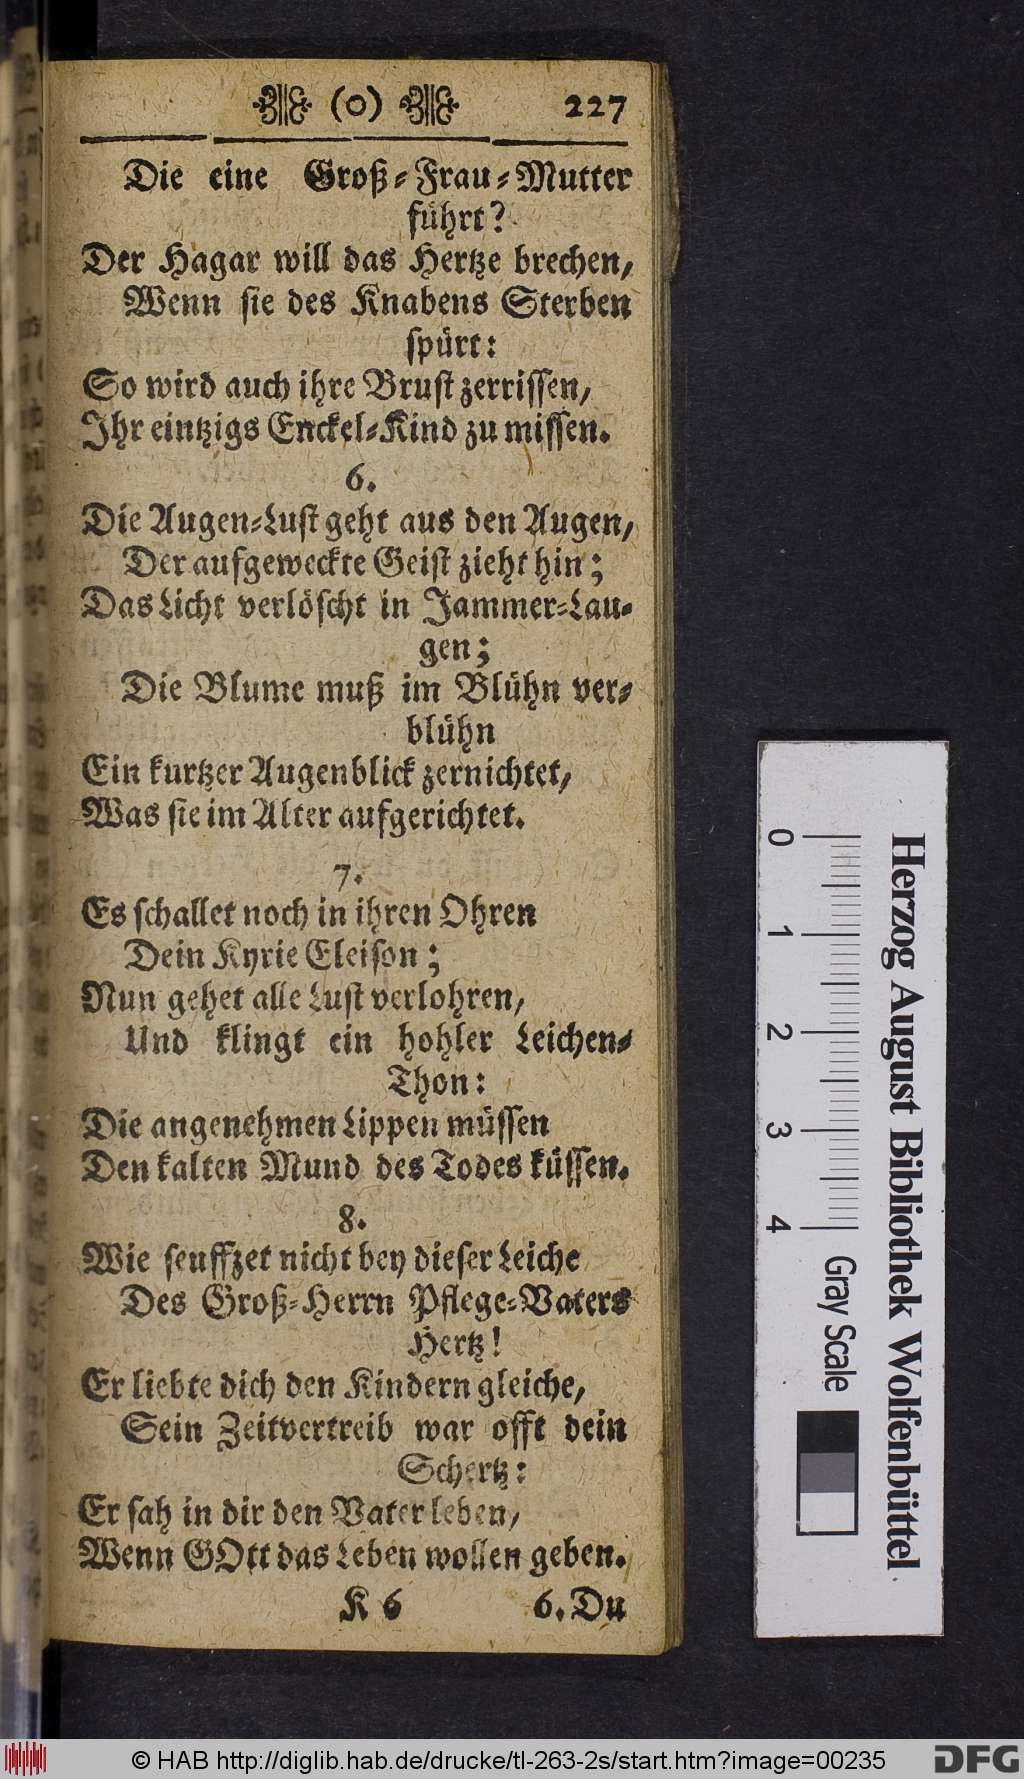 (o) 227
Die eine Groß-Frau-Mutter
führt?
Der Hagar will das Hertze brechen,
Wenn sie des Knabens Sterben
spürt:
So wird auch ihre Brust zerrissen,
Ihr eintzigs Enckel-Kind zu missen.
6.
Die Augen-Lust geht aus den Augen,
Der aufgeweckte Geist zieht hin;
Das Licht verlöscht in Jammer-Lau-
gen;
Die Blume muß im Blühn ver-
blühn
Ein kurtzer Augenblick zernichtet,
Was sie im Alter aufgerichtet.
7.
Es schallet noch in ihren Ohren
Dein Kyrie Eleison;
Nun gehet alle Lust verlohren,
Und klingt ein hohler Leichen-
Thon:
Die angenehmen Lippen müssen
Den kalten Mund des Todes küssen.
8.
Wie seuffzet nicht bey dieser Leiche
Des Groß-Herrn Pflege-Vaters
Hertz!
Er liebte dich den Kindern gleiche,
Sein Zeitvertreib war offt dein
Schertz:
Er sah in dir den Vater leben,
Wenn GOtt das Leben wollen geben.
K 6 6. Du
0 1 2 3 4 Gray Scale
Herzog August Bibliothek Wolfenbüttel
© HAB http://diglib.hab.de/drucke/tl-263-2s/start.htm?image=00235
DFG